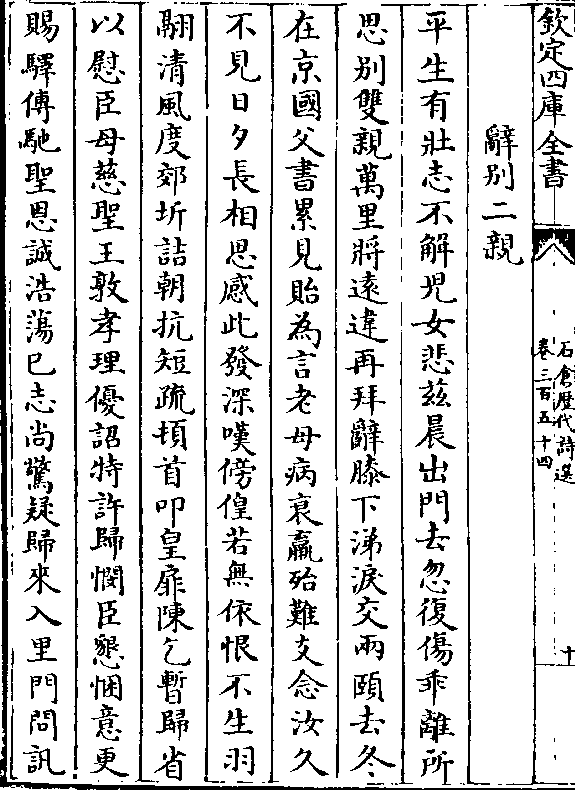 欽定四庫全書
石倉歴代詩選
卷三百五十四
十
辭别二親
平生有壯志不解兒女悲兹晨出門去忽復傷乖離所
思别雙親萬里將逺違再拜辭膝下涕淚交兩頤去冬
在京國父書累見貽為言老母病衰羸殆難支念汝久
不見日夕長相思感此發深嘆傍偟若無依恨不生羽
翮清風度郊圻詰朝抗短疏頓首叩皇扉陳乞暫歸省
以慰臣母慈聖王敦孝理優詔特許歸憫臣懇悃意更
賜驛傳馳聖恩誠浩蕩已志尚驚疑歸來入里門問訊